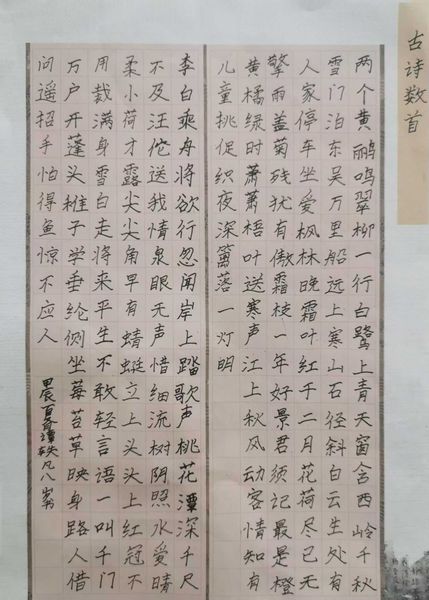 古诗数首
两个黄鹂鸣翠柳一行白鹭上青天窗含西岭千秋
雪门泊东吴万里船远上寒山石径斜白云生处有
人家停车坐爱枫林晚霜叶红于二月花荷尽已无
擎雨盖菊残犹有傲霜枝一年好景君须记最是橙
黄橘绿时萧萧梧叶送寒声江上秋风动客情知有
儿童挑促织夜深篱落一灯明
李白乘舟将欲行忽闻岸上踏歌声桃花潭深千尺
不及汪伦送我情泉眼无声惜细流树阴照水爱晴
柔小荷才露尖尖角早有蜻蜓立上头头上红冠不
用裁满身雪白走将来平生不敢轻言语一叫千门
万户开蓬头稚子学垂纶侧坐莓苔草映身路人借
问遥招手怕得鱼惊不应人
谭轶凡八岁